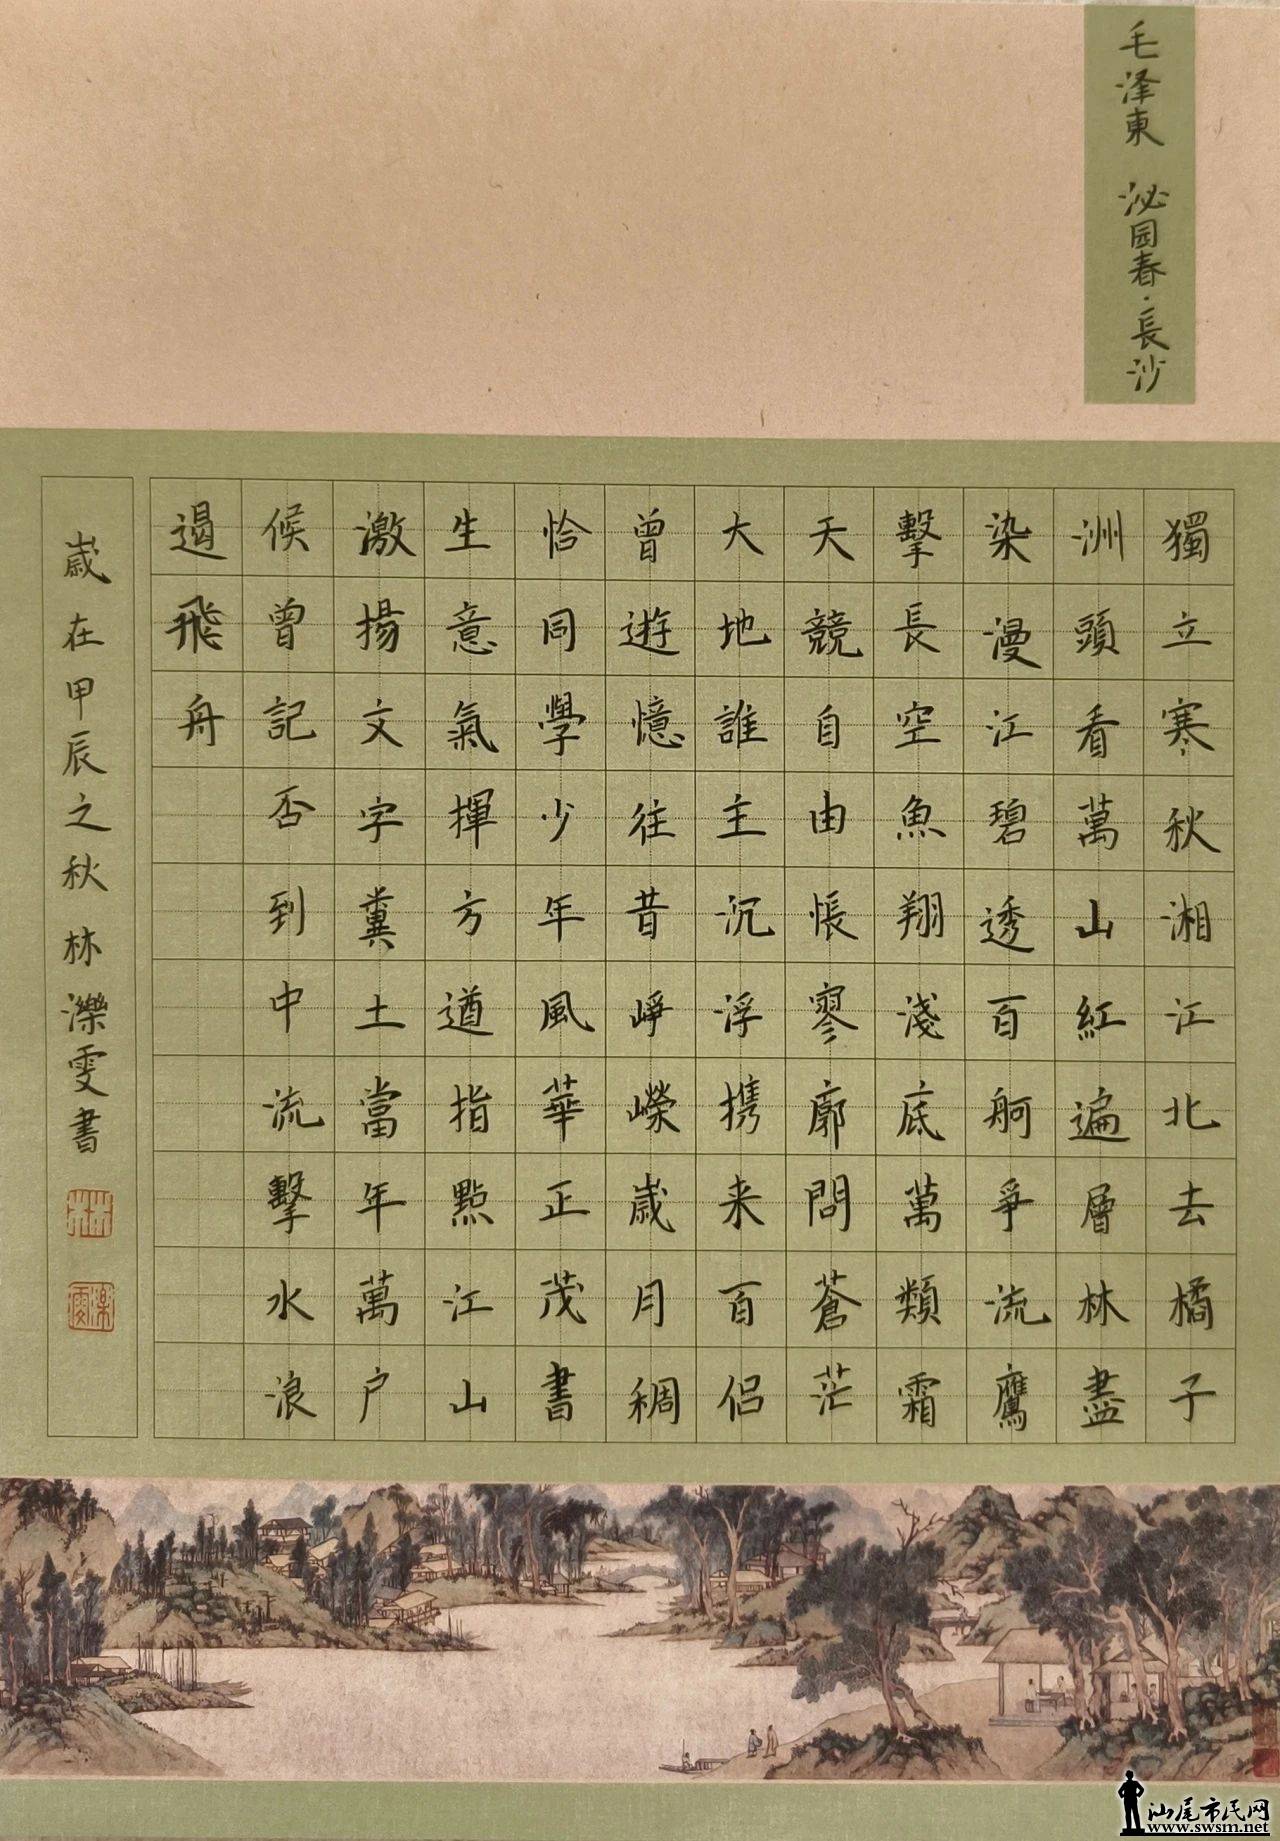 毛泽東 泌园春·長沙
獨立寒秋湘江北去橘子
洲頭看萬山紅遍層林盡
染漫江碧透百舸爭流鷹
擊長空魚翔淺底萬類霜
天競自由悵寥廓問蒼茫
大地誰主沉浮携来百侣
曾遊憶往昔崢嶸歲月稠
恰同學少年風華正茂書
生意氣揮方遒指點江山
激揚文字糞土當年萬户
候曾記否到中流擊水浪
遏飛舟
歲在甲辰之秋 林濼雯書
林
濼雯
汕尾市民网
www.swsm.net